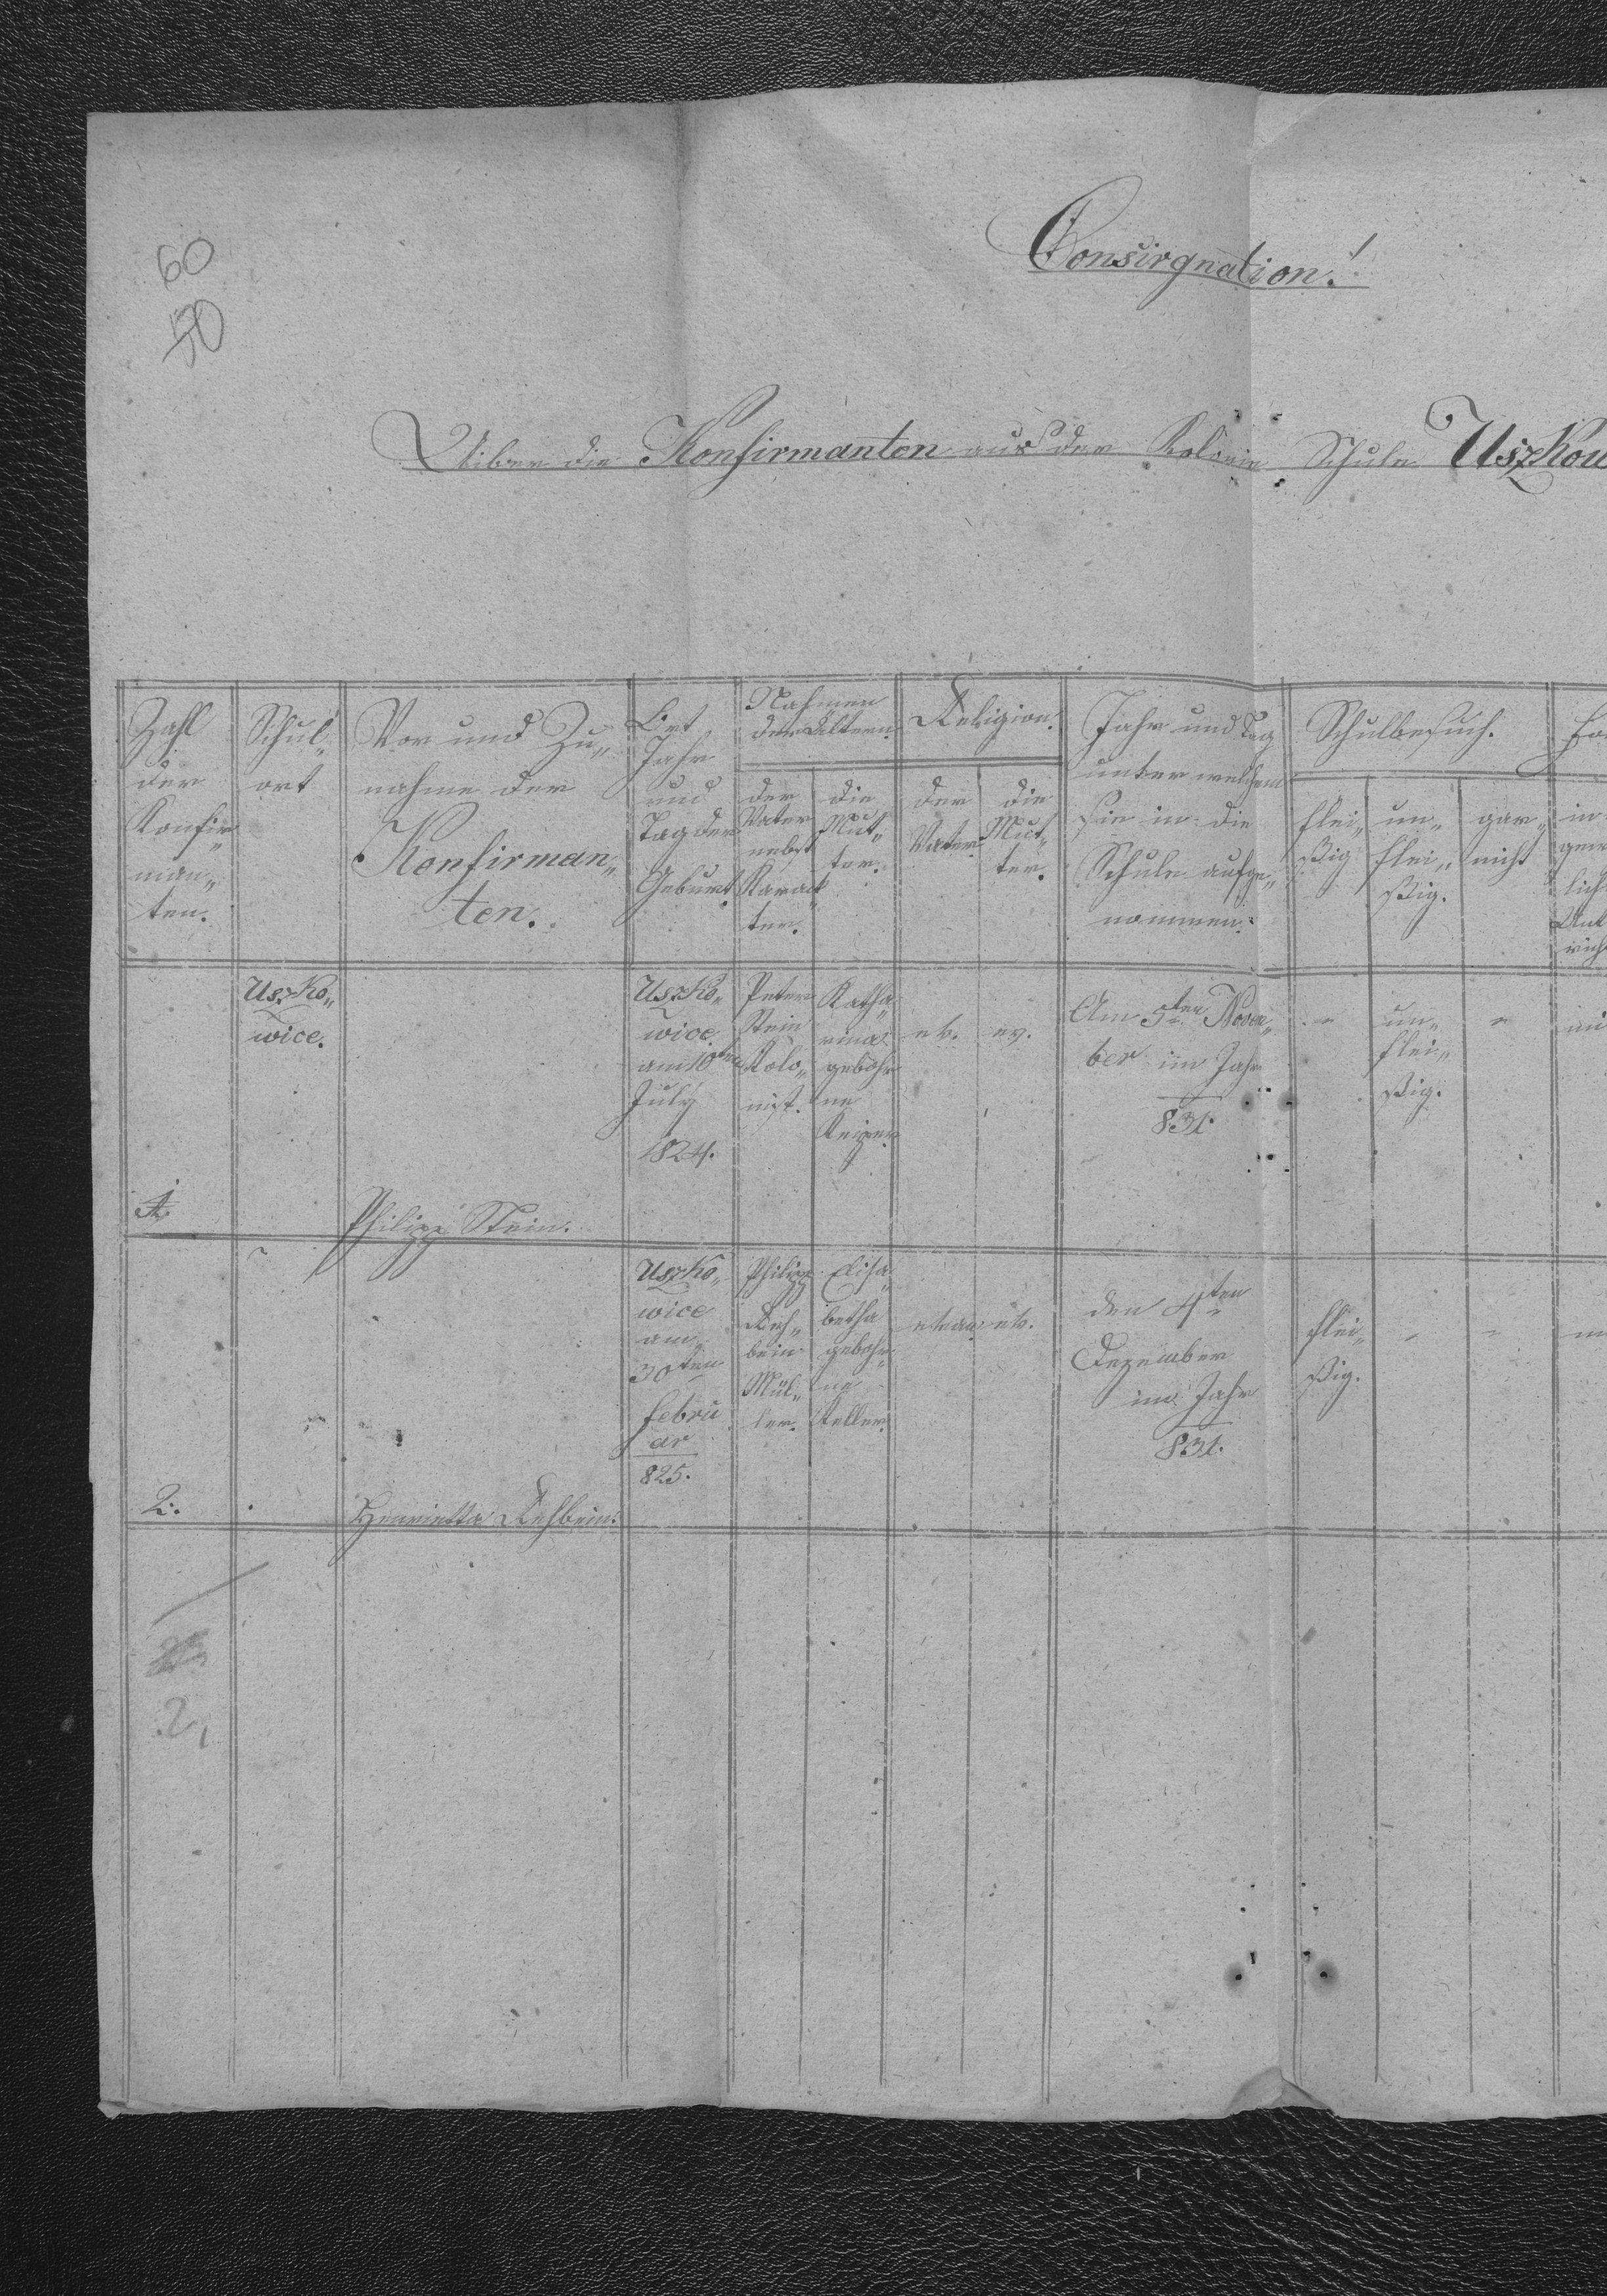 60
50
Consirgnation!
Uiber die Konfirmanten aus der Kolonie Schule Uszkow
Zahl
der
Konfir„
man„
ten.
Schul„
ort
Vor und Zu„
nahme der
Konfirman„
ten.
Ort
Jahr
und
Tag der
Geburt.
Nahmen
der Eltern.
der
Vater
nebst
Karack„
ter.
die
Mut„
ter.
Religion.
der
Vater
die
Mut„
ter.
Jahr und Tag
unter welchem
sie in die
Schule aufge„
nommen.
Schulbesuch.
flei„
ßig
un„
flei„
ßig.
gar„
nicht
in
lich
1.
Uszko„
wice.
Philipp Stein.
Uszko„
wice
am 10ten
July
1824.
Peter
Stein
Kolo„
nist.
Katha„
rina
gebohr
ne
ev.
ev.
Am 5ten Novem„
ber im Jahr
831.
-
un„
flei„
ßig.
"
2.
Henrietta Rehbein.
Uszko„
wice
am
30ten
Febru
ar
825.
Philipp
Reh„
bein
Mül„
ler.
Elisa„
betha
gebohr„
ne
Keller.
ev.
den 4ten
Dezember
im Jahr
831.
flei„
ßig.
-
-
2,